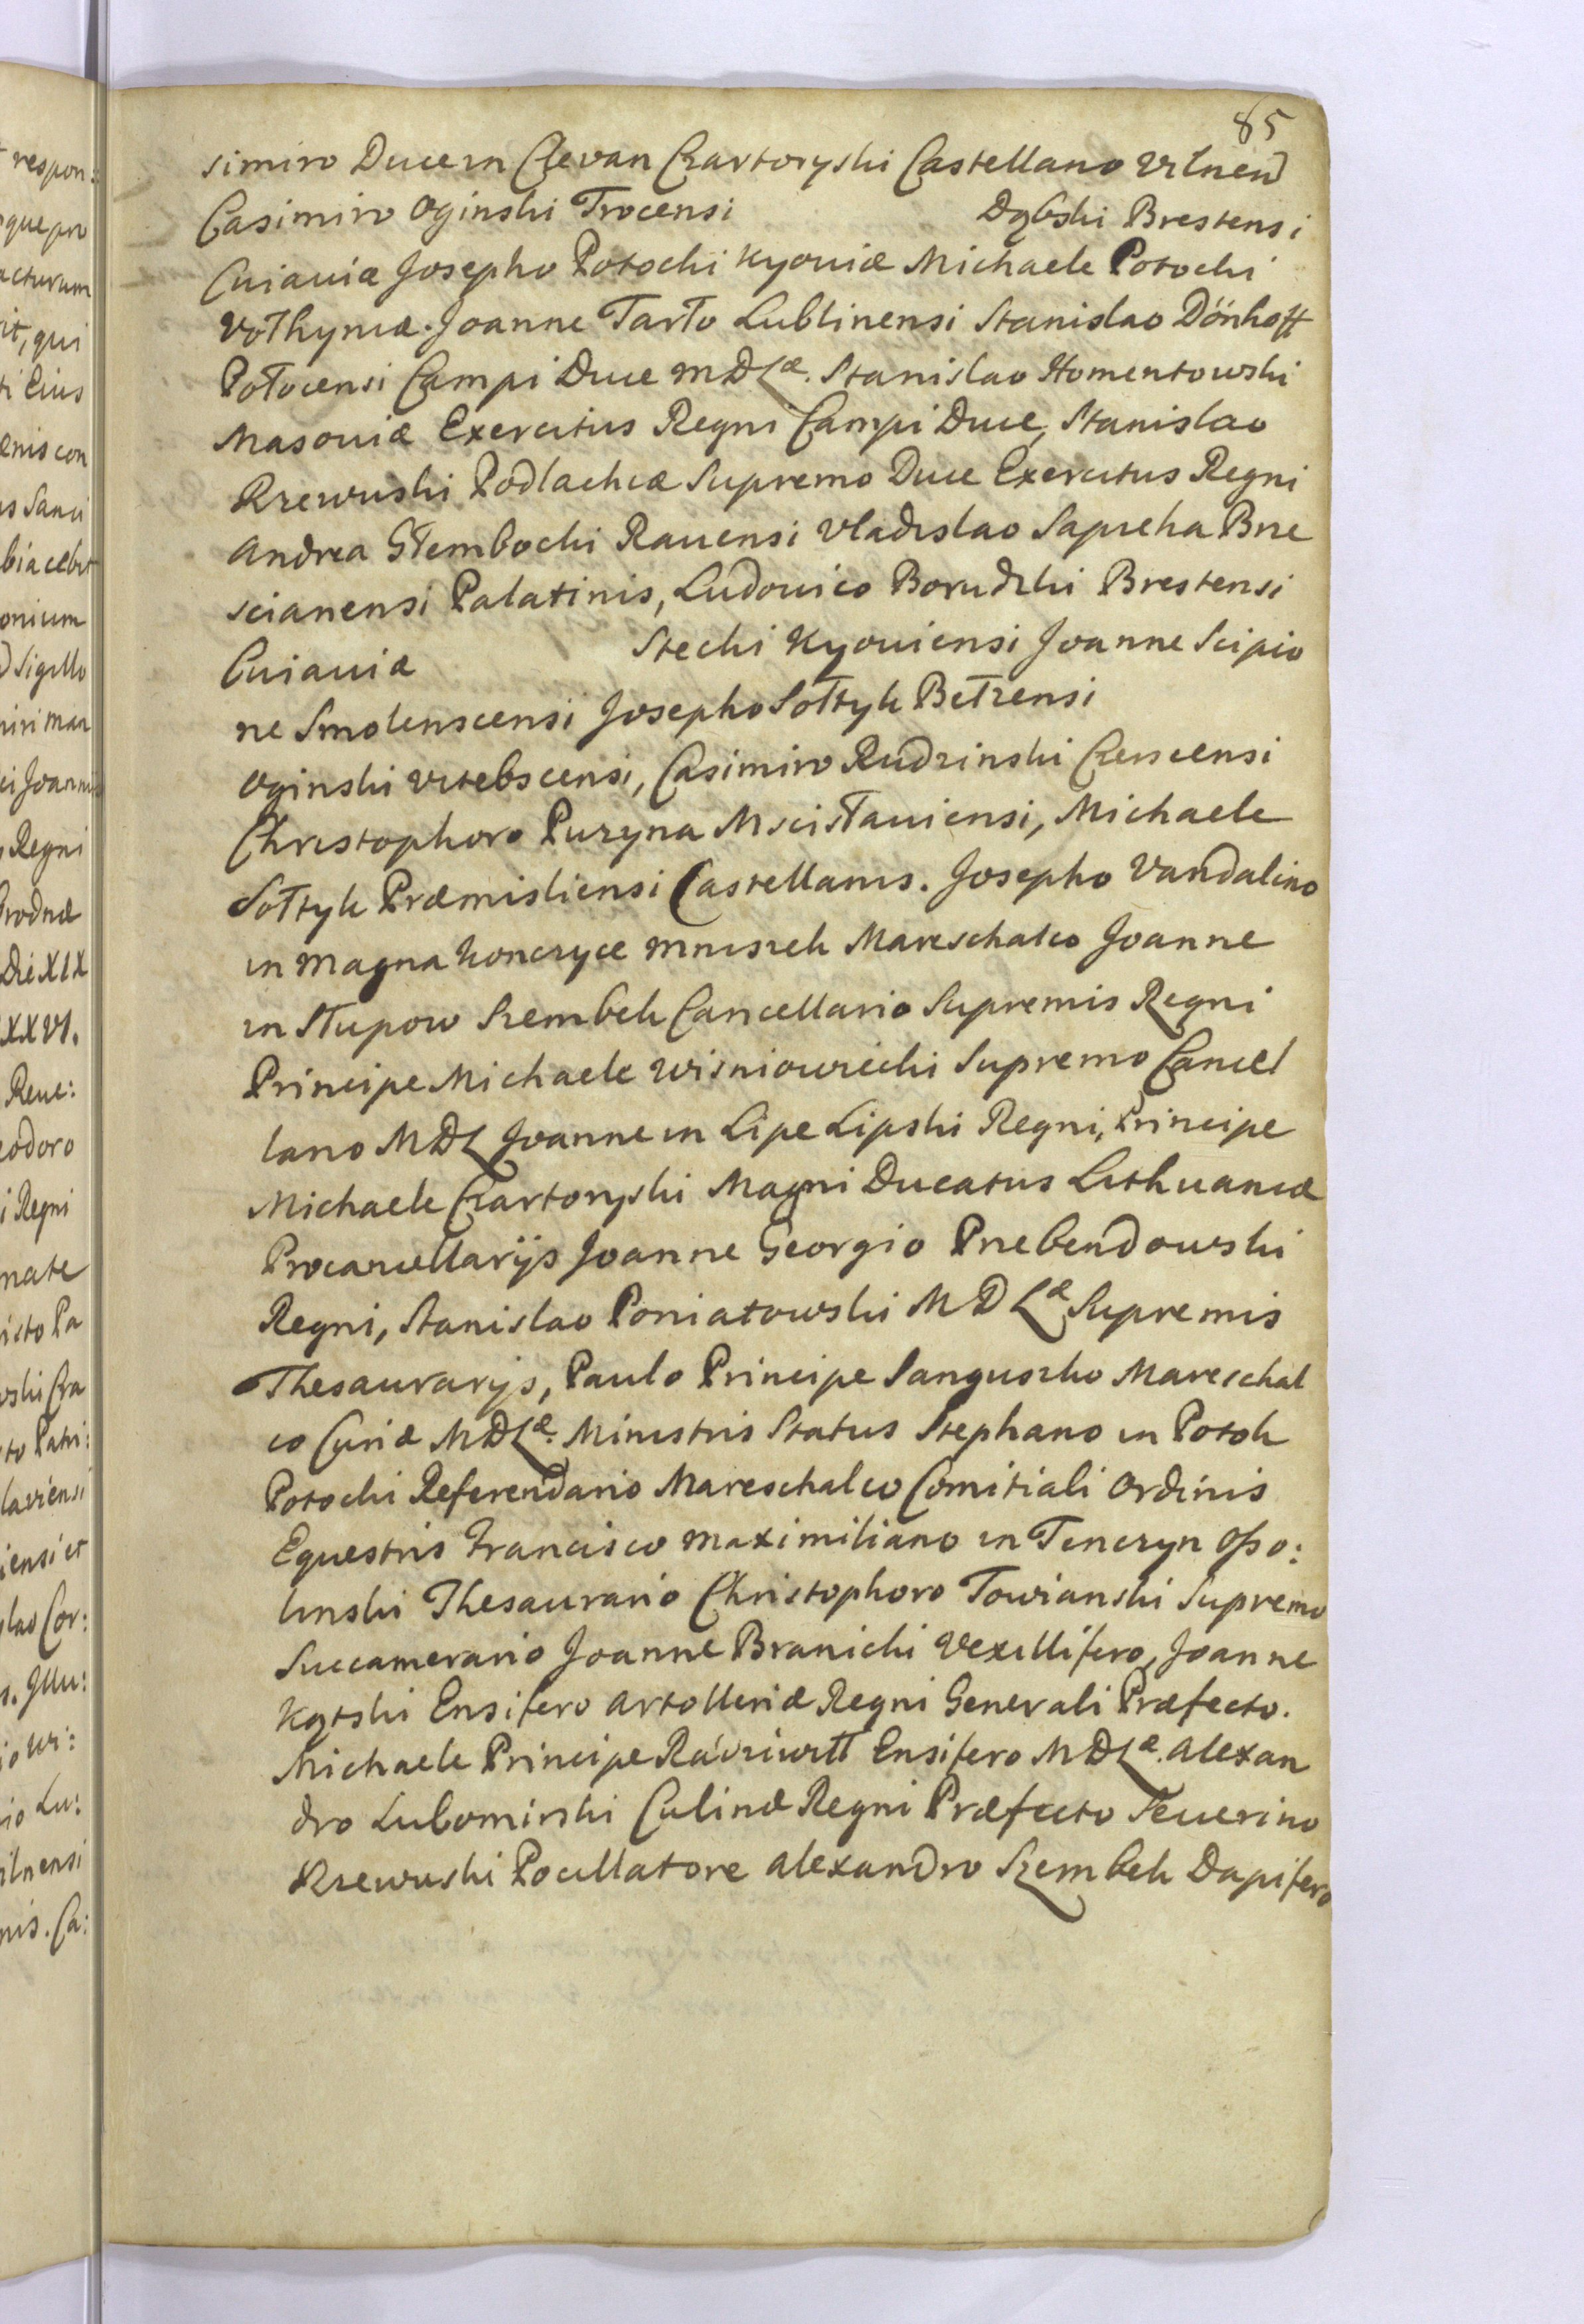 85
simiro Duce in Clevan Czartoryski Castellano Vilnen
Casimiro Oginski Trocensi Dąbski Brestensi
Cuiaviæ Josepho Potocki Kyoviæ Michaele Potocki
Vołhyniæ. Joanne Tarło Lublinensi Stanislao Dönhoff
Połocensi Campi Duce MDLæ. Stanislao Homentowski
Masoviæ Exercitus Regni Campi Duce, Stanislao
Rzewuski Podlachiæ Supremo Duce Exercitus Regni
Andrea Głembocki Ravensi Vladislao Sapieha Brze
scianensi Palatinis, Ludovico Borucki Brestensi
Cuiaviæ Stecki Kyoviensi Joanne Scipio
ne Smolenscensi Josepho Sołtyk Bełzensi
Oginski Vitebscensi, Casimiro Rudzinski Czerscensi
Christophoro Puzyna Mscisłaviensi, Michaele
Sołtyk Præmisliensi Castellanis. Josepho Vandalino
in Magna Konczyce Mniszek Mareschalco Joanne
in Słupow Szembek Cancellario Supremis Regni
Principe Michaele Wisniowiecki Supremo Cancel
lario MDL Joanne in Lipe Lipski Regni, Principe
Michaele Czartoryski Magni Ducatus Lithuaniæ
Procancellarijs Joanne Georgio Przebendowski
Regni, Stanislao Poniatowski MDLæ Supremis
Thesaurarijs, Paulo Principe Sanguszko Mareschal
co Curiæ MDLæ. Ministris Status Stephano in Potok
Potocki Referendario Mareschalco Comitiali Ordinis
Equestris Francisco Maximiliano in Tenczyn Osso:
linski Thesaurario Christophoro Towianski Supremo
Succamerario Joanne Branicki Vexillifero, Joanne
Kątski Ensifero Artolleriæ Regni Generali Præfecto.
Michaele Principe Radziwiłł Ensifero MDLæ. Alexan
dro Lubomirski Culinæ Regni Præfecto Severino
Rzewuski Pocillatore Alexandro Szembek Dapifero